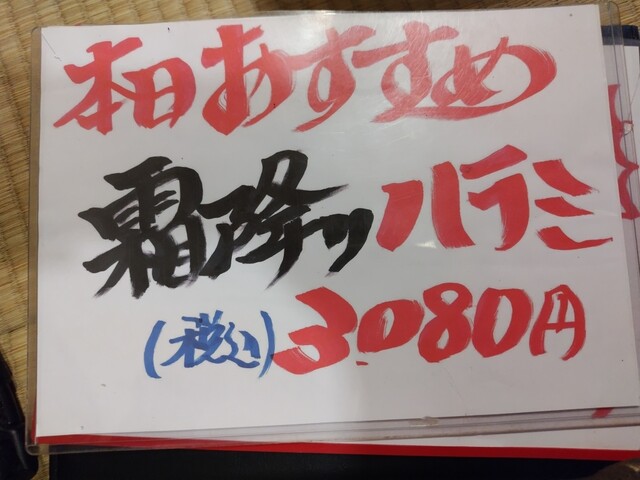 本日おすすめ
霜降りハラミ
(税込)3,080円